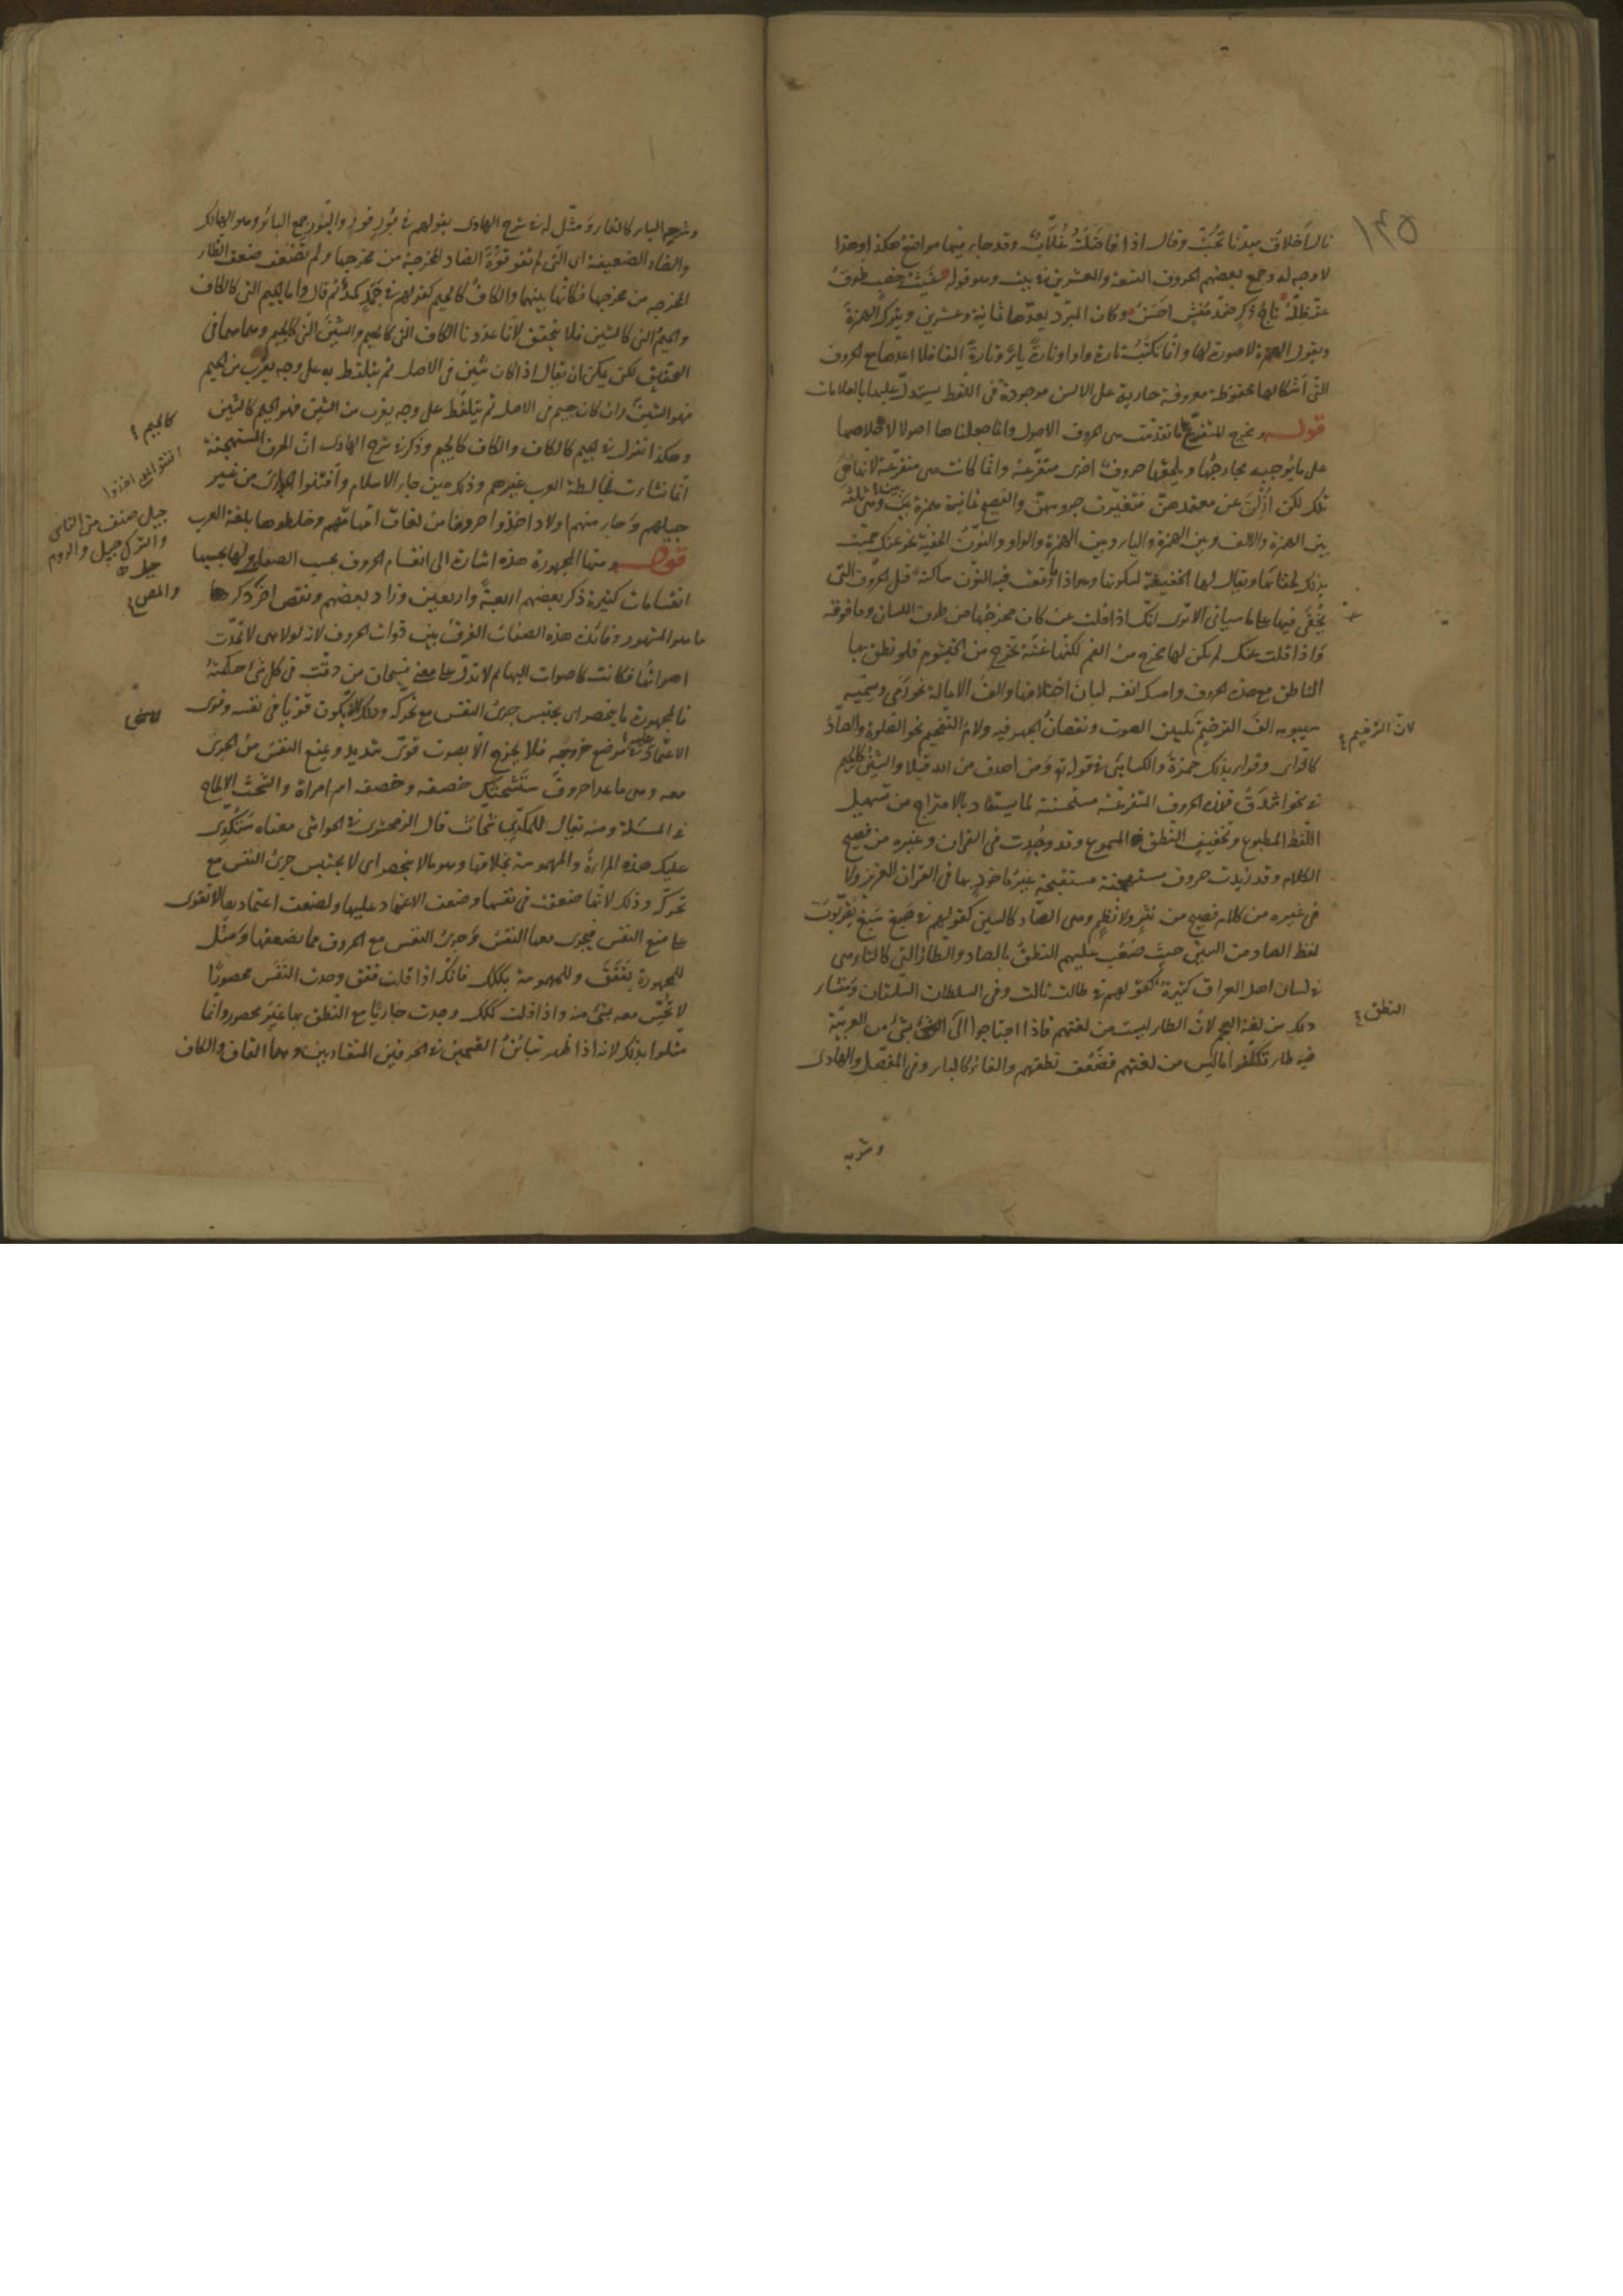 ١٢٥
وقال اذا فاضلت وقد جاء فيها مواضع هكذا وهذا
لا وجه له وجمع بعضهم الحروف التسعة والعشرين في بيت وهو قوله
وكان المبرد يعدها ثمانية وعشرين ويترك الهمزة
ويقول الهمزة لا صورة لها وانما تكتب تارة واوا وتارة ياء وتارة الفا فلا اعدها مع الحروف
التي اشكالها محفوظة معروفة جارية على الالسن موجودة في اللفظ يستدل عليها بالعلامات
قوله ومخرج المتفرع لما تقدمت من الحروف الاصول وانما جعلناها اصولا
على ما يوجبه مخارجها ويلحقها حروف اخرى متفرعة وانما كانت هي متفرعة لانها هي
تلك لكن ازلن عن معتمدهن فتغيرت جروسهن والفصيح ثمانية همزة بين بين وهي ثلثة
بين الهمزة والالف وبين الهمزة والياء وبين الهمزة والواو والنون الخفية نحو عنك سميت
بذلك لخفائها ويقال لها الخفيفة لسكونها وهو اذا وقعت فيه النون ساكنة قبل الحروف التي
تخفى فيها على ما سيأتي الا ترى انك اذا قلت عن كان مخرجها من طرف اللسان وما فوقه
واذا قلت عنك لم يكن لها مخرج من الفم لكنها غنة تخرج من الخيشوم فلو نطق بها
الناطق مع هذه الحروف وامسك انفه لبان اختلافها والف الامالة نحو رمى وسميه
سيبويه الف الترخيم لتليين الصوت ونقصان الجهر فيه ولام التفخيم نحو الصلوة والصاد
كالزاي وقراء بذلك حمزة والكسائي في قوله تع ومن اصدق من الله قيلا والشين كالجيم
في نحو اشدق فهذه الحروف المتفرعة مستحسنة لما يستفاد بالامتزاج من تسهيل
اللفظ المطبوع وتخفيف النطق المسموع وقد وجدت في القران وغيره من فصيح
الكلام وقد زيدت حروف مستهجنة مستقبحة غير ماخوذ بها في القران العزيز ولا
في غيره من كلام فصيح من نثر ولا نظم وهي الصاد كالسين كقولهم في صبغ سبغ يقربون
لفظ الصاد من السين حيث صعب عليهم النطق بالصاد والطاء التي كالتاء وهي
في لسان اهل العراق كثيرة كقولهم في طالت تالت وفي السلطان السلتان ومنشاء
ذلك من لغة العجم لان الطاء ليست من لغتهم فاذا احتاجوا الى النطق بشئ من العربية
فيه طاء تكلفوا ما ليس من لغتهم فضعف نطقهم والفاء كالباء وفي المفصل والهادي
لان الترخيم
النطق
وشرحه الباء كالفاء ومثل له في شرح الهادي بقولهم في بور فور والبور جمع البائر وهو الهالك
والضاد الضعيفة اي التي لم تقو قوة الضاد المخرجة من مخرجها ولم تضعف ضعف الظاء
المخرجة من مخرجها فكانها بينهما والكاف كالجيم كقولهم في جمل كمل ثم قال واما الجيم التي كالكاف
والجيم التي كالشين فلا يتحقق لانا عددنا الكاف التي كالجيم والشين التي كالجيم وهما هما في
التحقيق لكن يمكن ان يقال اذا كان شين في الاصل ثم يتلفظ به على وجه يقرب من الجيم
فهو الشين وان كان جيم في الاصل ثم يتلفظ على وجه يقرب من الشين فهو الجيم كالشين
وهكذا نقول في الجيم كالكاف والكاف كالجيم وذكر في شرح الهادي ان الحرف المستهجنة
انما نشاءت لمخالطة العرب غيرهم وذلك حين جاء الاسلام واقتنوا الجواري من غير
جيلهم وجاء منهم اولاد اخذوا حروفا من لغات امهاتهم وخلطوها بلغة العرب
قوله ومنها المجهورة هذه اشارة الى انقسام الحروف بحسب الصفات ولها بحسبها
انقسامات كثيرة ذكر بعضهم اربعة واربعين وزاد بعضهم ونقص اخر ذكر
ما هو المشهور وفائدة هذه الصفات الفرق بين ذوات الحروف لانه لولا هي لاتحدت
اصواتها فكانت كاصوات البهائم لا تدل على معنى فسبحان من دقت في كل شئ حكمته
فالمجهورة ما ينحصر اي يحتبس جرى النفس مع تحركه وذلك لانه يكون قويا في نفسه وقوى
الاعتماد عليه في موضع خروجه فلا يخرج الا بصوت قوى شديد ويمنع النفس من الجرى
معه وهي ما عدا حروف ستشحثك خصفه وخصفه اسم امراة والشحث الالحاح
في المسئلة ومنه يقال للمكدي شحاث قال الزمخشري في الحواشي معناه ستكدى
عليك هذه المراءة والمهموسة بخلافها وهو ما لا ينحصر اي لا يحتبس جرى النفس مع
تحركه وذلك لانها ضعفت في نفسها وضعف الاعتماد عليها ولضعف اعتمادها لا تقوى
على منع النفس فيجرى معها النفس وجرى النفس مع الحروف مما يضعفها ومثل
للمجهورة بققق وللمهموسة بككك فانك اذا قلت ققق وجدت النفس محصورا
لا تحس معه بشئ منه واذا قلت ككك وجدت جاريا مع النطق بها غير محصور وانما
مثلوا بذلك لانه اذا ظهر تباين القسمين في الحرفين المتقاربين وهما القاف والكاف
كالجيم
اقتنوا اي اخذوا
جيل صنف من الناس
والترك جيل والروم
جيل
والمص